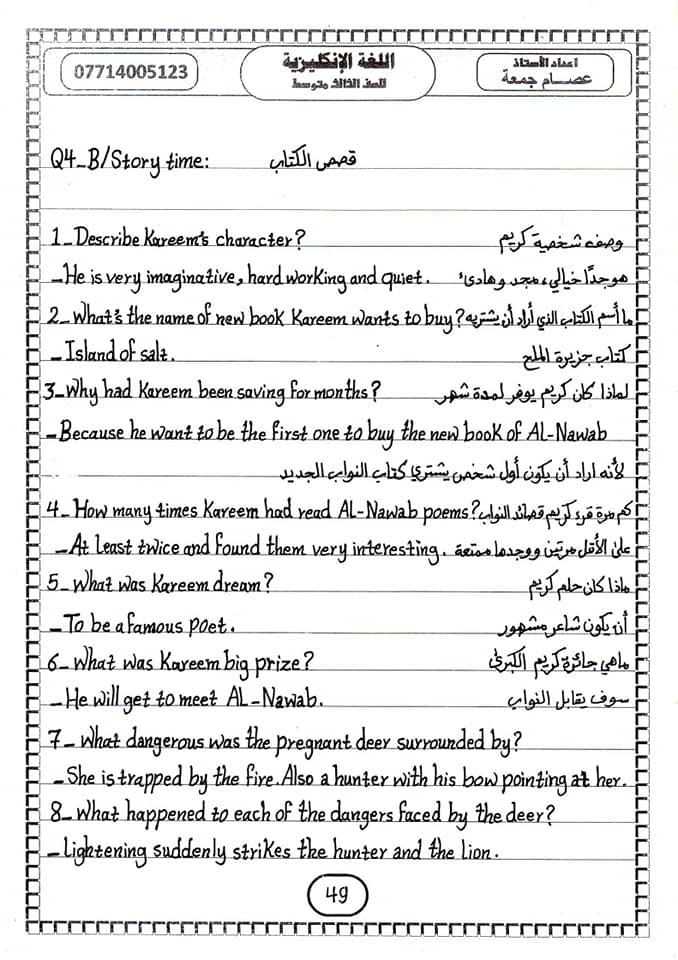 07714005123
اللغة الإنكليزية
للصف الثالث متوسط
اعداد الأستاذ
عصام جمعة
Q4_B/Story time: قصص الكتاب
1_Describe Kareem's character? وصف شخصية كريم
_He is very imaginative, hard working and quiet. هو جدًا خيالي، مجد وهادىء
2_What's the name of new book Kareem wants to buy? ما أسم الكتاب الذي أراد أن يشتريه
_Island of salt. كتاب جزيرة الملح
3_Why had Kareem been saving for months? لماذا كان كريم يوفر لمدة شهر
_Because he want to be the first one to buy the new book of AL-Nawab
لأنه اراد أن يكون أول شخص يشتري كتاب النواب الجديد
4_How many times Kareem had read AL-Nawab poems? كم مرة قرء كريم قصائد النواب
_At least twice and found them very interesting. على الأقل مرتين ووجدها ممتعة
5_What was Kareem dream? ماذا كان حلم كريم
_To be a famous poet. أن يكون شاعر مشهور
6_What was Kareem big prize? ماهي جائزة كريم الكبرى
_He will get to meet AL-Nawab. سوف يقابل النواب
7_What dangerous was the pregnant deer surrounded by?
_She is trapped by the fire. Also a hunter with his bow pointing at her.
8_What happened to each of the dangers faced by the deer?
_lightening suddenly strikes the hunter and the lion.
49